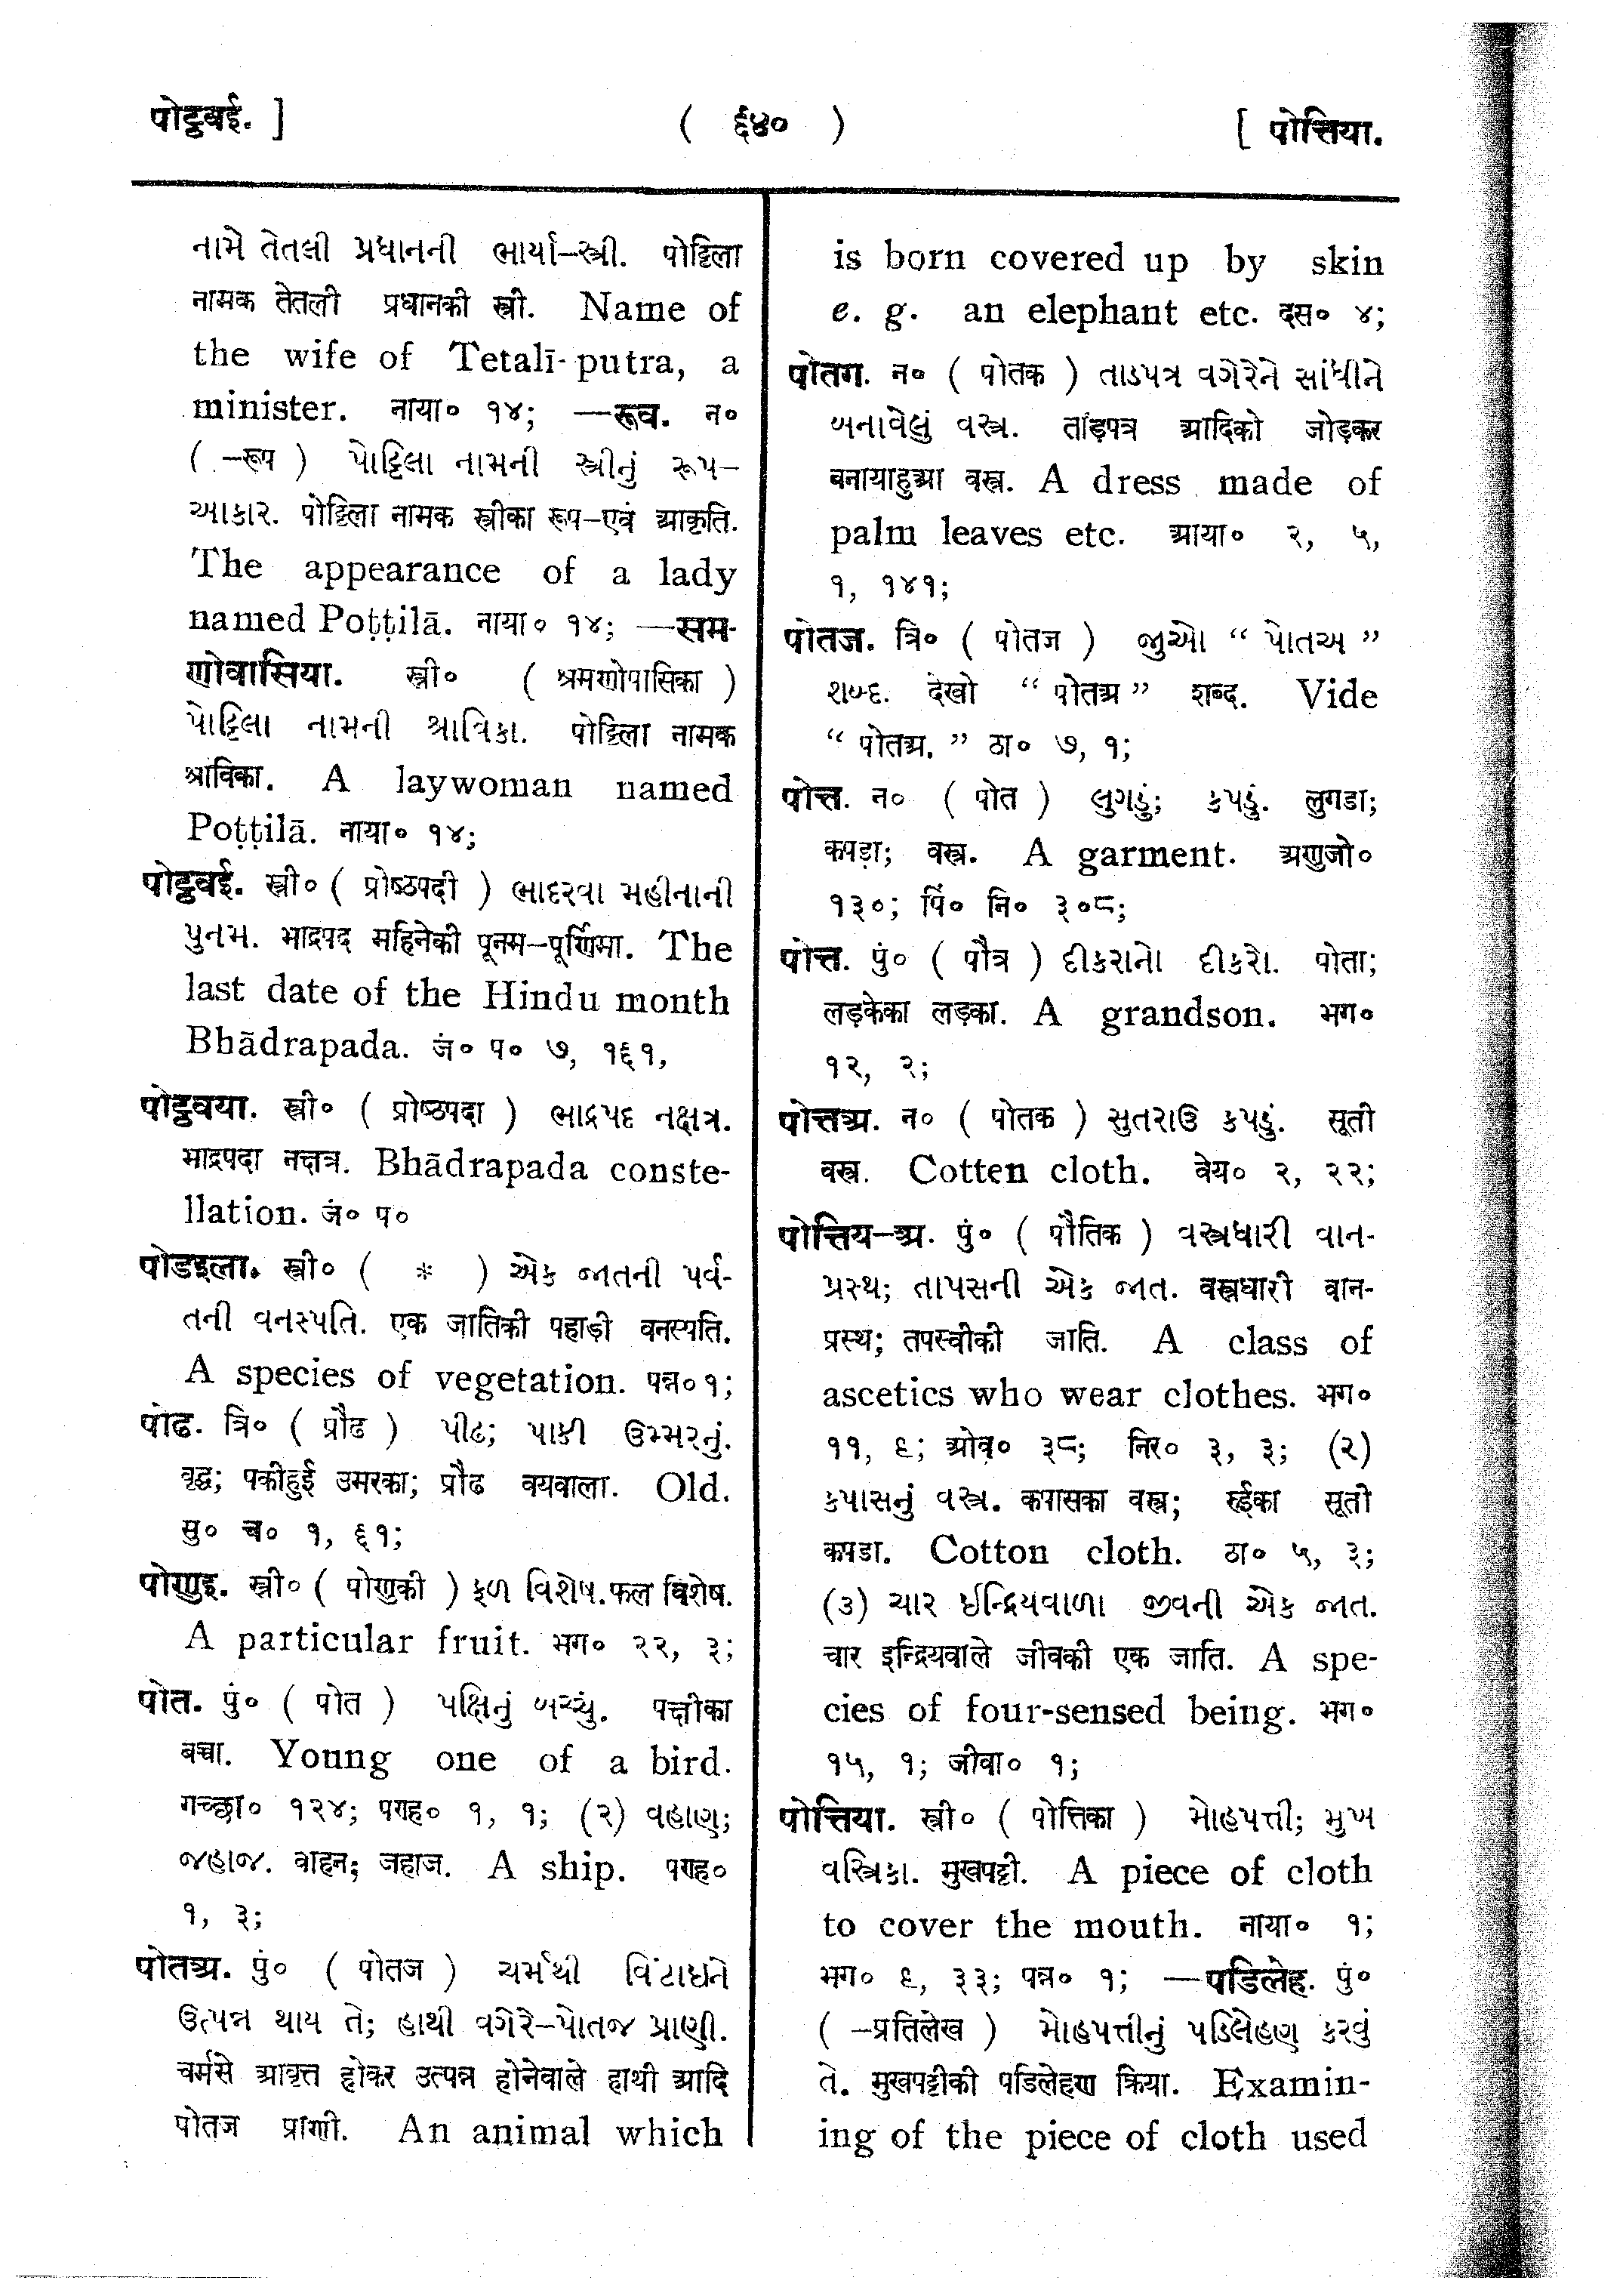 पोट्ठवई. ]
( ६४० )
[ पोत्तिया.
નામે તેતલી પ્રધાનની ભાર્યા–સ્ત્રી. पोट्टिला
नामक तेतली प्रधानकी स्त्री. Name of
the wife of Tetalī-putra, a
minister. नाया० १४; —रूव. न०
( –रूप ) પોટ્ટિલા નામની સ્ત્રીનું રૂપ–
આકાર. पोट्टिला नामक स्त्रीका रूप–एवं आकृति.
The appearance of a lady
named Poṭṭilā. नाया० १४; —सम-
णोवासिया. स्त्री० ( श्रमणोपासिका )
પોટ્ટિલા નામની શ્રાવિકા. पोट्टिला नामक
श्राविका. A laywoman named
Poṭṭilā. नाया० १४;
पोट्ठवई. स्त्री० ( प्रोष्ठपदी ) ભાદરવા મહીનાની
પુનમ. भाद्रपद महिनेकी पूनम–पूर्णिमा. The
last date of the Hindu month
Bhādrapada. जं० प० ७, १६१,
पोट्ठवया. स्त्री० ( प्रोष्ठपदा ) ભાદ્રપદ નક્ષત્ર.
भाद्रपदा नक्षत्र. Bhādrapada conste-
llation. जं० प०
पोडइला. स्त्री० ( * ) એક જાતની પર્વ-
તની વનસ્પતિ. एक जातिकी पहाड़ी वनस्पति.
A species of vegetation. पन्न० १;
पोढ. त्रि० ( प्रौढ ) પીઢ; પાકી ઉમ્મરનું.
वृद्ध; पकीहुई उमरका; प्रौढ वयवाला. Old.
सु० च० १, ६१;
पोणइ. स्त्री० ( पोणकी ) ફળ વિશેષ. फल विशेष.
A particular fruit. भग० २२, ३;
पोत. पुं० ( पोत ) પક્ષિનું બચ્ચું. पक्षीका
बच्चा. Young one of a bird.
गच्छा० १२४; पराह० १, १; (२) વહાણ;
જહાજ. वाहन; जहाज. A ship. पराह०
१, ३;
पोतअ. पुं० ( पोतज ) ચર્મથી વિંટાઇને
ઉત્પન્ન થાય તે; હાથી વગેરે–પોતજ પ્રાણી.
चर्मसे आवृत्त होकर उत्पन्न होनेवाले हाथी आदि
पोतज प्राणी. An animal which
is born covered up by skin
e. g. an elephant etc. दस० ४;
पोतग. न० ( पोतक ) તાડપત્ર વગેરેને સાંધીને
બનાવેલું વસ્ત્ર. ताड़पत्र आदिको जोड़कर
बनायाहुआ वस्त्र. A dress made of
palm leaves etc. आया० २, ५,
१, १४१;
पोतज. त्रि० ( पोतज ) જુઓ “ પોતઅ ”
શબ્દ. देखो “ पोतअ ” शब्द. Vide
“ पोतअ. ” ठा० ७, १;
पोत्त. न० ( पोत ) લુગડું; કપડું. लुगडा;
कपड़ा; वस्त्र. A garment. अणुजो०
१३०; पिं० नि० ३०८;
पोत्त. पुं० ( पौत्र ) દીકરાનો દીકરો. पोता;
लड़केका लड़का. A grandson. भग०
१२, २;
पोत्तअ. न० ( पोतक ) સુતરાઉ કપડું. सूती
वस्त्र. Cotten cloth. वेय० २, २२;
पोत्तिय–अ. पुं० ( पौतिक ) વસ્ત્રધારી વાન-
પ્રસ્થ; તાપસની એક જાત. वस्त्रधारी वान-
प्रस्थ; तपस्वीकी जाति. A class of
ascetics who wear clothes. भग०
११, ६; ओव० ३८; निर० ३, ३; (२)
કપાસનું વસ્ત્ર. कपासका वस्त्र; रुईका सूती
कपडा. Cotton cloth. ठा० ५, ३;
(૩) ચાર ઈન્દ્રિયવાળા જીવની એક જાત.
चार इन्द्रियवाले जीवकी एक जाति. A spe-
cies of four-sensed being. भग०
१५, १; जीवा० १;
पोत्तिया. स्त्री० ( पोत्तिका ) મોહપત્તી; મુખ
વસ્ત્રિકા. मुखपट्टी. A piece of cloth
to cover the mouth. नाया० १;
भग० ६, ३३; पन्न० १; —पडिलेह. पुं०
( –प्रतिलेख ) મોહપત્તીનું પડિલેહણ કરવું
તે. मुखपट्टीकी पडिलेहण क्रिया. Examin-
ing of the piece of cloth used